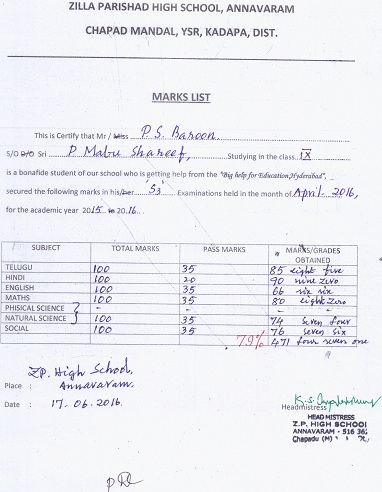 ZILLA PARISHAD HIGH SCHOOL, ANNAVARAM
CHAPAD MANDAL, YSR, KADAPA, DIST.
MARKS LIST
This is Certify that Mr / Miss P.S. Baroon
S/O D/O Sri P. Mabu Shareef, Studying in the class IX
is a bonafide student of our school who is getting help from the "Big help for Education,Hyderabad",
secured the following marks in his/her 'S3' Examinations held in the month of April - 2016,
for the academic year 2015 to 2016.
SUBJECT TOTAL MARKS PASS MARKS MARKS/GRADES OBTAINED
TELUGU 100 35 85 eight five
HINDI 100 20 90 nine zero
ENGLISH 100 35 66 six six
MATHS 100 35 80 eight zero
PHISICAL SCIENCE - - -
NATURAL SCIENCE 100 35 74 seven four
SOCIAL 100 35 76 seven six
79% 471 four seven one
Place : Z.P. High School, Annavaram.
Date : 17.06.2016
Headmistress
HEAD MISTRESS
Z.P. HIGH SCHOOL
ANNAVARAM - 516 36
Chapadu (M)